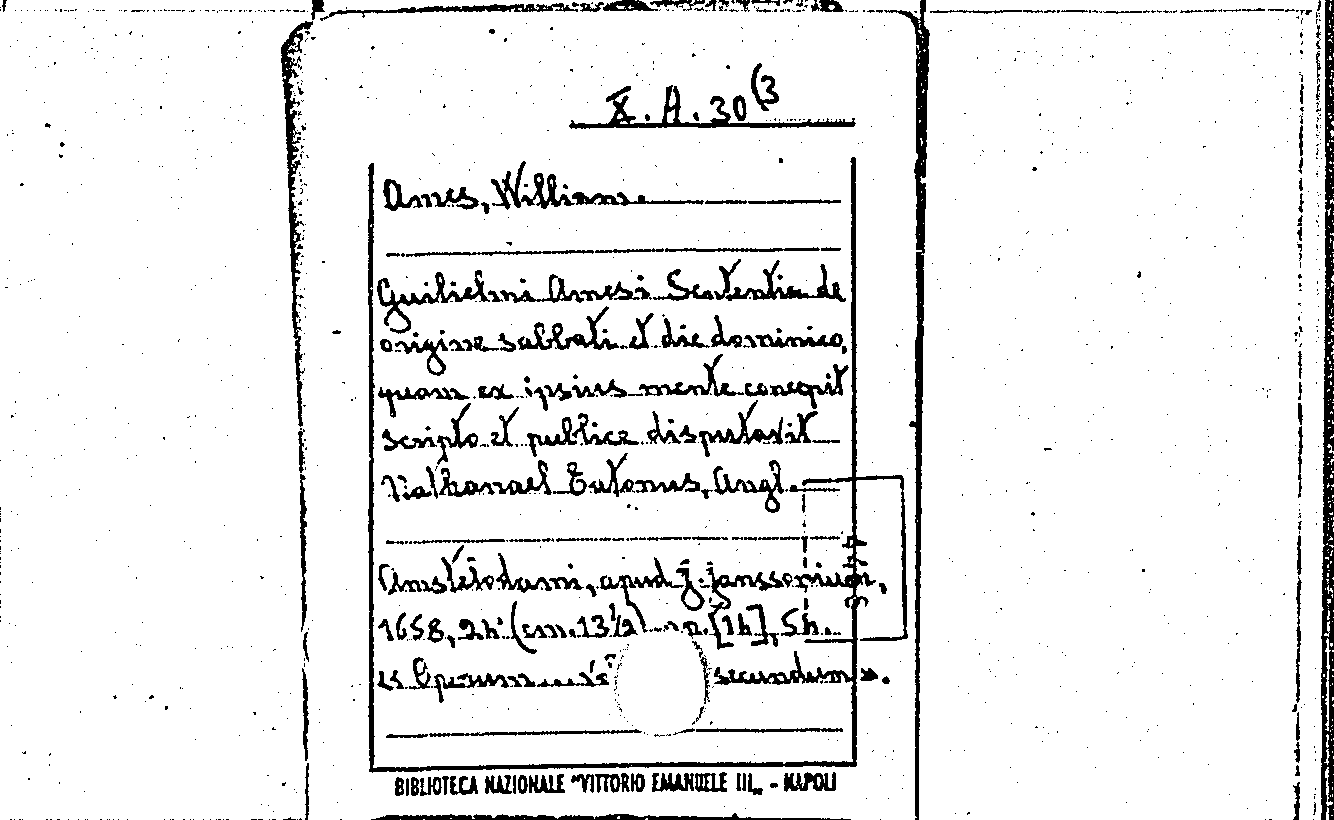 X. A. 30(3
Ames, William.
Guilielmi Amesi Sententia de
origine sabbati et die dominico,
quam ex ipsius mente concepit
scripto et publice disputavit
Nathanael Eutonus, Angl.
Amstelodami, apud J. Janssonium,
1658, 24° (cm. 13½) pp. [14], 54.
secundum ».
BIBLIOTECA NAZIONALE "VITTORIO EMANUELE III„ - NAPOLI